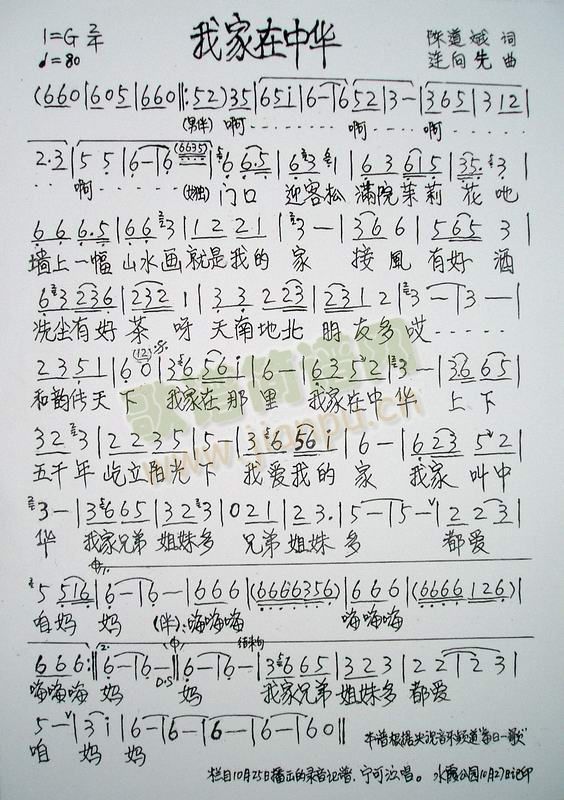 1=G 2/4 我家在中华 陈道斌 词
♩=80 连向先 曲
(660|605|660‖:52)35|651|6-|652|3-|365|312|
(男伴) 啊 啊 啊
2·3|55|6-|6(6635)|66·5|631|6361 5|35·3|
啊 (女独) 门口 迎客松 满院茉莉 花吔
666·5|663|1221|3-|366|565 3|
墙上一幅 山水画 就是我的 家 接風 有好 酒
63236|2321|33223|2312|3-|3-|
洗尘有好 茶呀 天南地北 朋友多哎
2351|60|36561|6-|63521|3-|3665|
和韵传天 下 我家在那 里 我家在中 华 上下
323|2235|5-|36561|6-|62352|
五千年 屹立阳光 下 我爱我的 家 我家 叫中
3-|3665|323|021|23·|5-|5-|223|
华 我家兄弟 姐妹多 兄弟 姐妹 多 都爱
5516|6-|6-|666|(6666356)|666|(6666126)|
咱妈 妈 (伴):嗨嗨嗨 嗨嗨嗨
666:‖6-|6-‖6-|6-|3665|323|22|23|
结束句
D.S
嗨嗨嗨 妈 妈 我家兄弟 姐妹多 都爱
5-|3i|6-|6-|6-|6-|60‖
咱 妈 妈 本谱根据央视音乐频道"每日一歌"
栏目10月25日播出的录音记谱,宁可泣唱。 水霞公园10月27日记印
歌谱简谱网
www.jianpu.cn